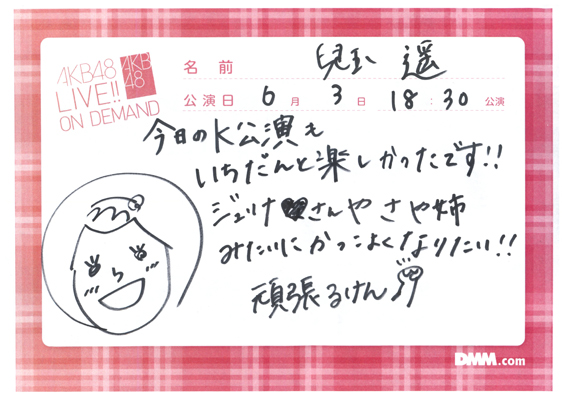 AKB48
LIVE!!
ON DEMAND
AKB
48
名前 兒玉 遥
公演日 6月 3日 18:30 公演
今日のK公演も
いちだんと楽しかったです!!
ジュリナさんや さや姉
みたいにかっこよくなりたい!!
頑張るけん
DMM.com